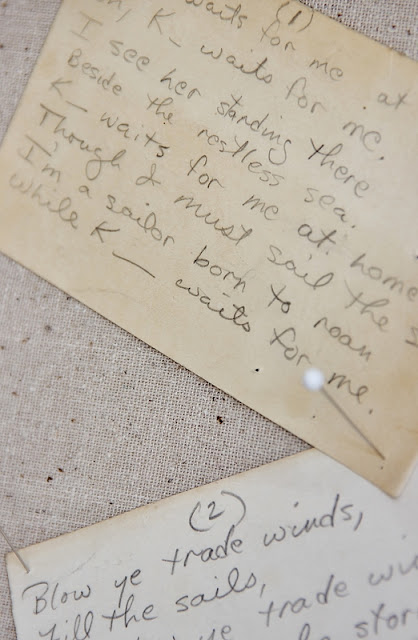 (1)
waits for me at
K— waits for me.
I see her standing there
Beside the restless sea.
K— waits for me at home
Though I must sail the s
I'm a sailor born to roam
while K— waits for me.
(2)
Blow ye trade winds,
fill the sails,
ye trade wi
stor